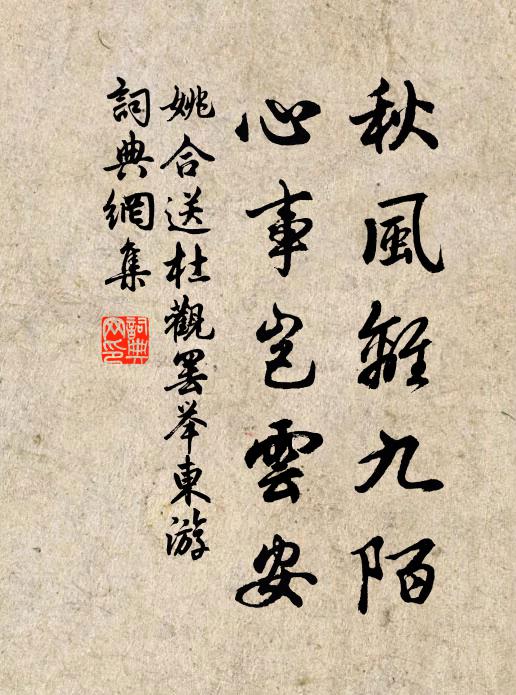 秋風離九陌
心事岂雲安
姚合送杜觀罷举東游
詞典網集
詞典網印